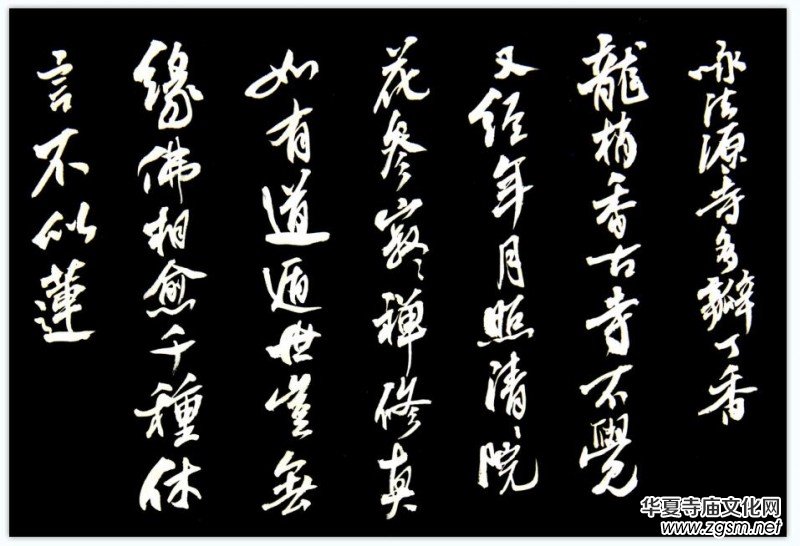 咏法源寺多瓣丁香
龍梢香古寺不覺
又經年月照清々院
花參寂々禪修真
如有道遁世豈無
緣佛相愈千種休
言不似蓮
华夏寺庙文化网
www.zgsm.net